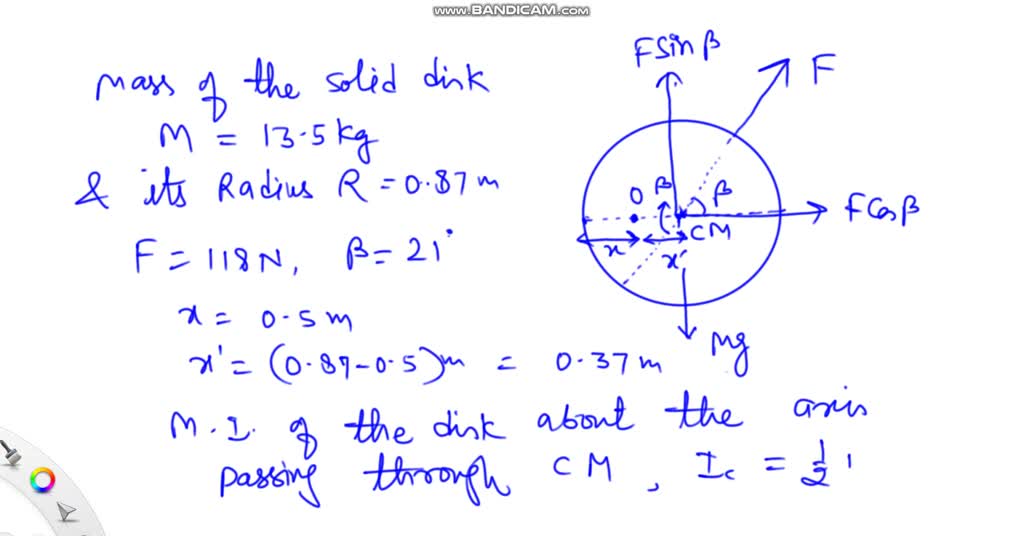 www.BANDICAM.com
Mass of the solid disk
M = 13.5 kg
& its Radius R = 0.87 m
F = 118 N, β = 21°
x = 0.5 m
x' = (0.87-0.5)m = 0.37 m
M.I. of the disk about the axis
passing through CM, Ic = 1/2
F sin β
F
O β β
F Cos β
CM
x x'
Mg